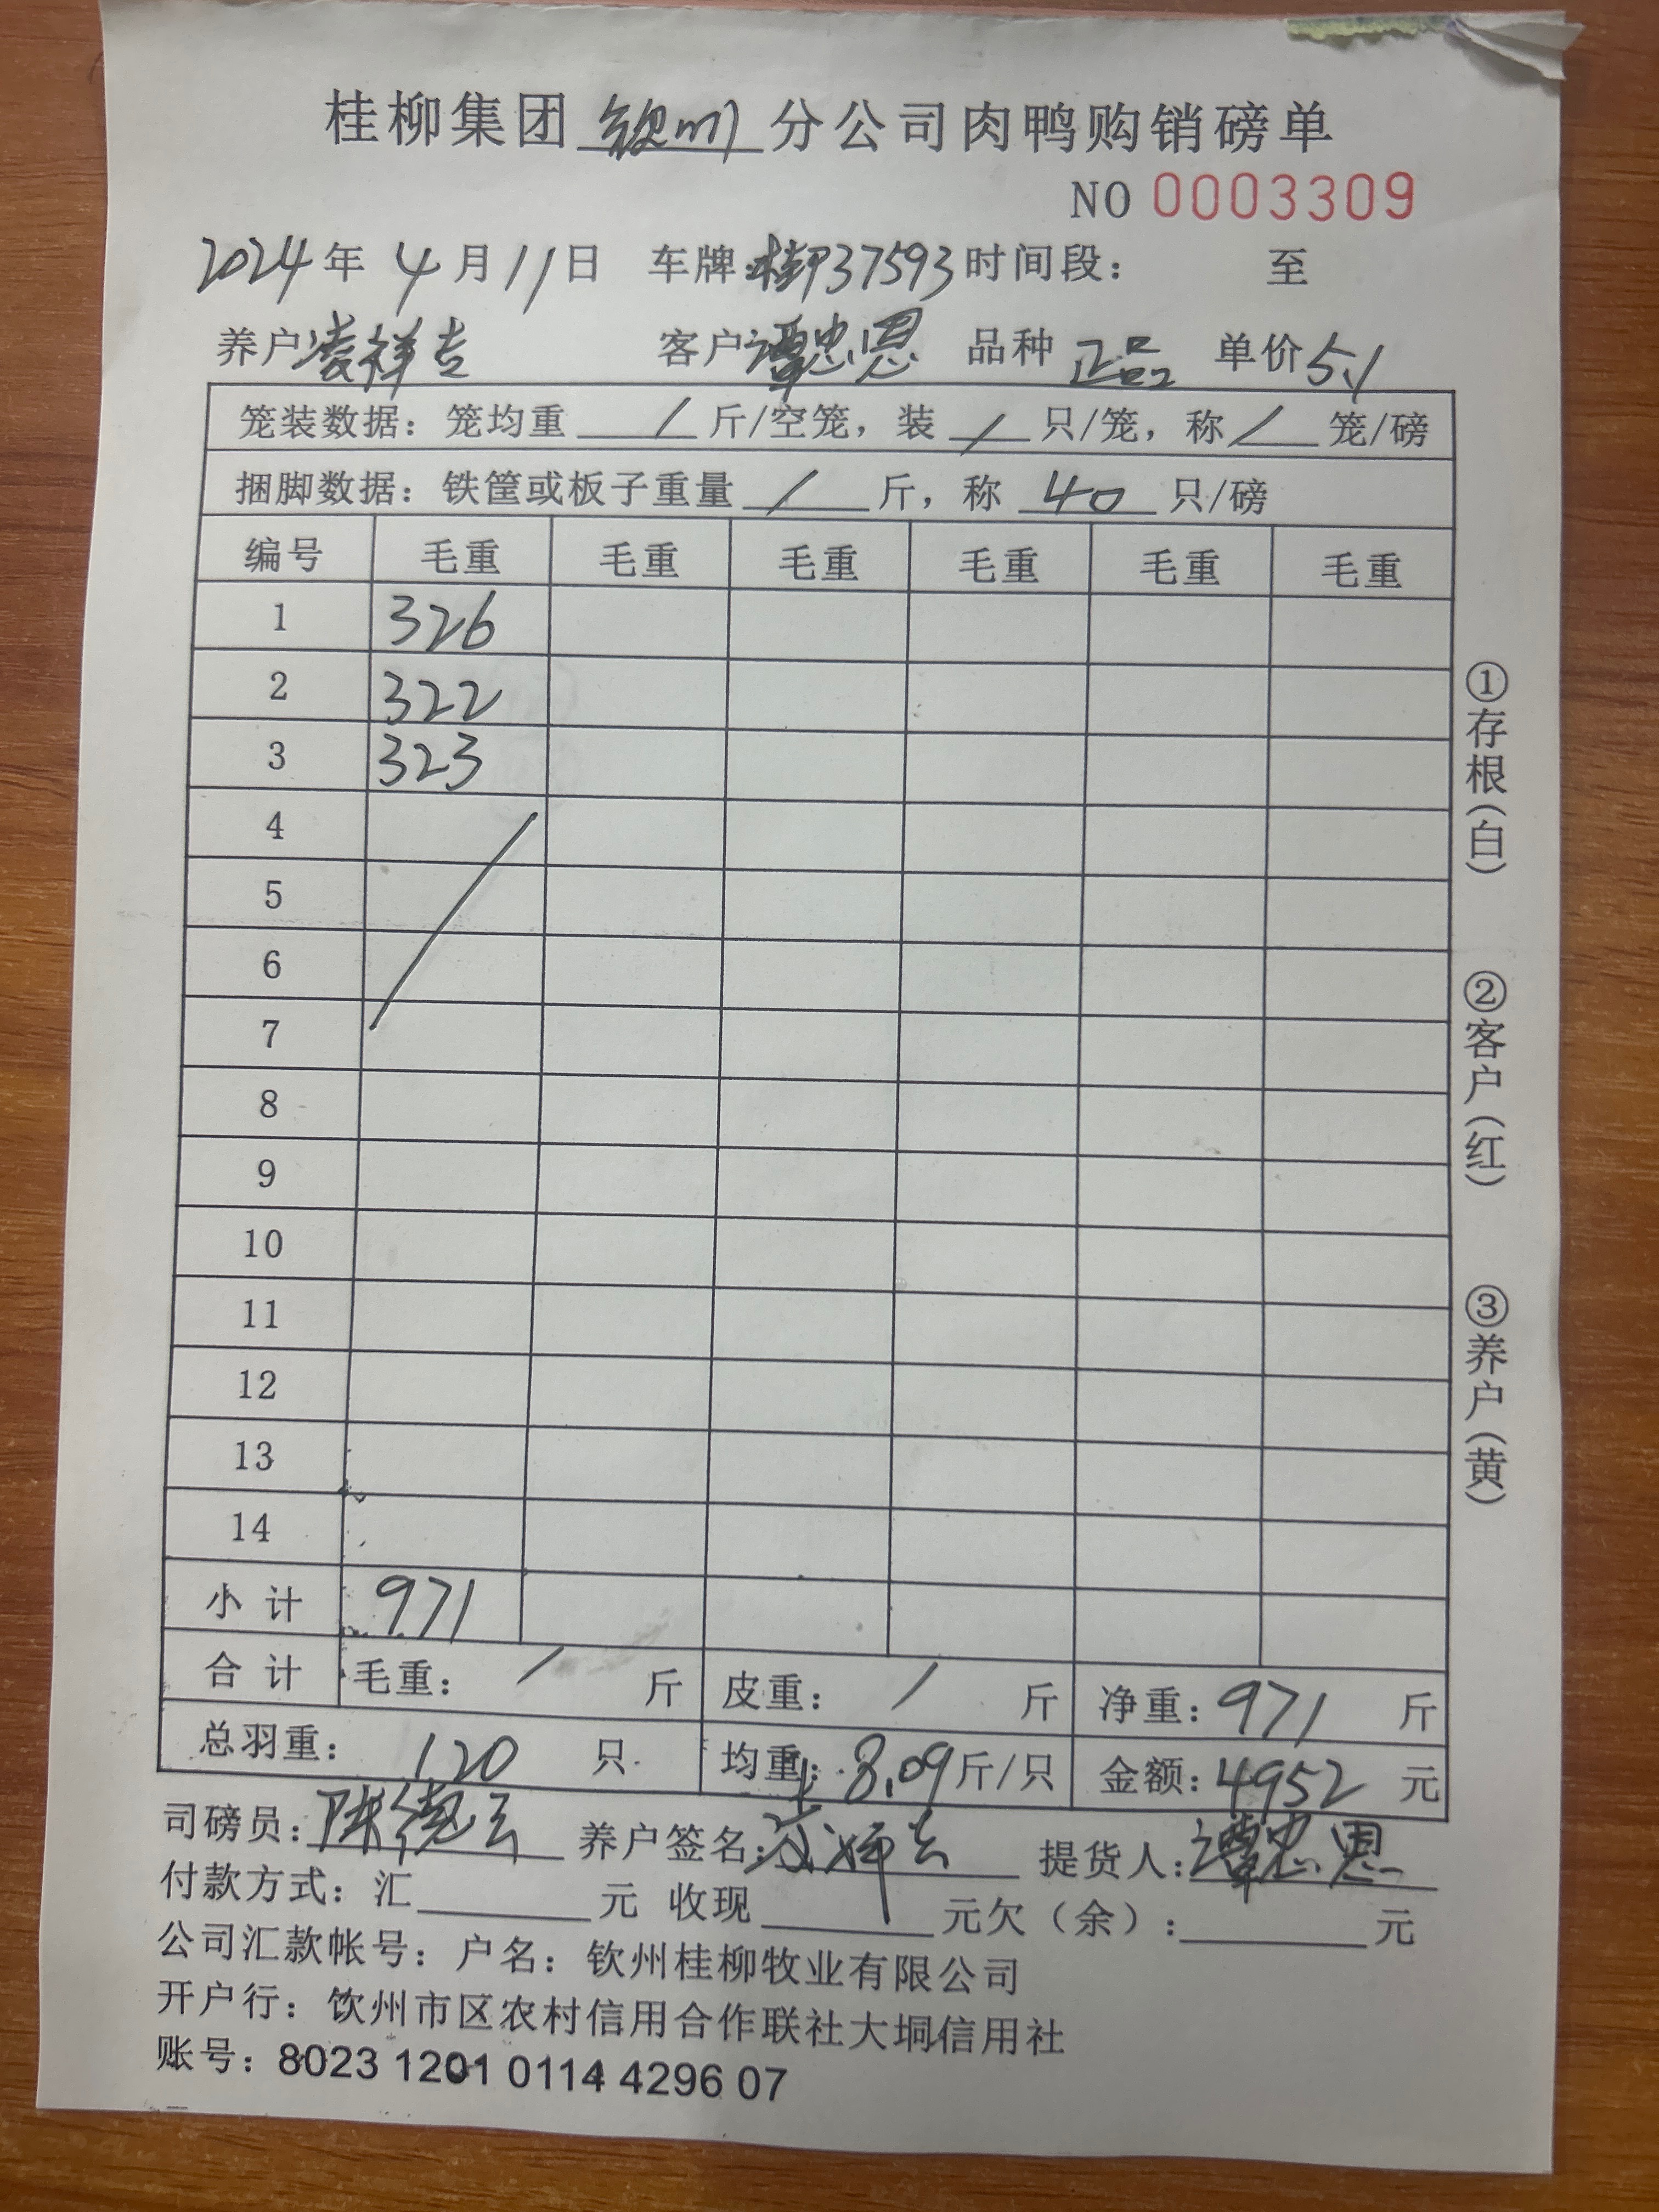 桂柳集团 钦州 分公司肉鸭购销磅单
NO 0003309
2024 年 4 月 11 日 车牌：桂P37593 时间段： 至
养户 凌祥吉 客户 谭忠恩 品种 正品 单价 5.1
笼装数据：笼均重 / 斤/空笼，装 / 只/笼，称 / 笼/磅
捆脚数据：铁筐或板子重量 / 斤，称 40 只/磅
编号 毛重 毛重 毛重 毛重 毛重 毛重
1 326
2 322
3 323
4
5
6
7
8
9
10
11
12
13
14
小计 971
合计 毛重： / 斤 皮重： / 斤 净重：971 斤
总羽重： 120 只 均重：8.09 斤/只 金额：4952 元
司磅员：陈德云 养户签名： 提货人：谭忠恩
付款方式：汇 元 收现 元欠（余）： 元
公司汇款帐号：户名：钦州桂柳牧业有限公司
开户行：饮州市区农村信用合作联社大垌信用社
账号：8023 1201 0114 4296 07
①存根（白）
②客户（红）
③养户（黄）